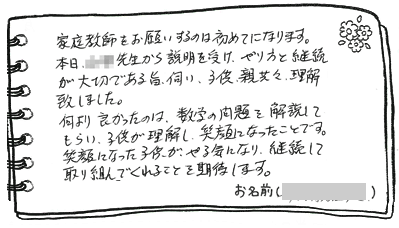 家庭教師をお願いするのは初めてになります。
本日、先生から説明を受け、やり方と継続
が大切である旨、伺い、子供、親共々、理解
致しました。
何より良かったのは、数学の問題を解説して
もらい、子供が理解し、笑顔になったことです。
笑顔になった子供が、やる気になり、継続して
取り組んでくれることを期待します。
お名前( )